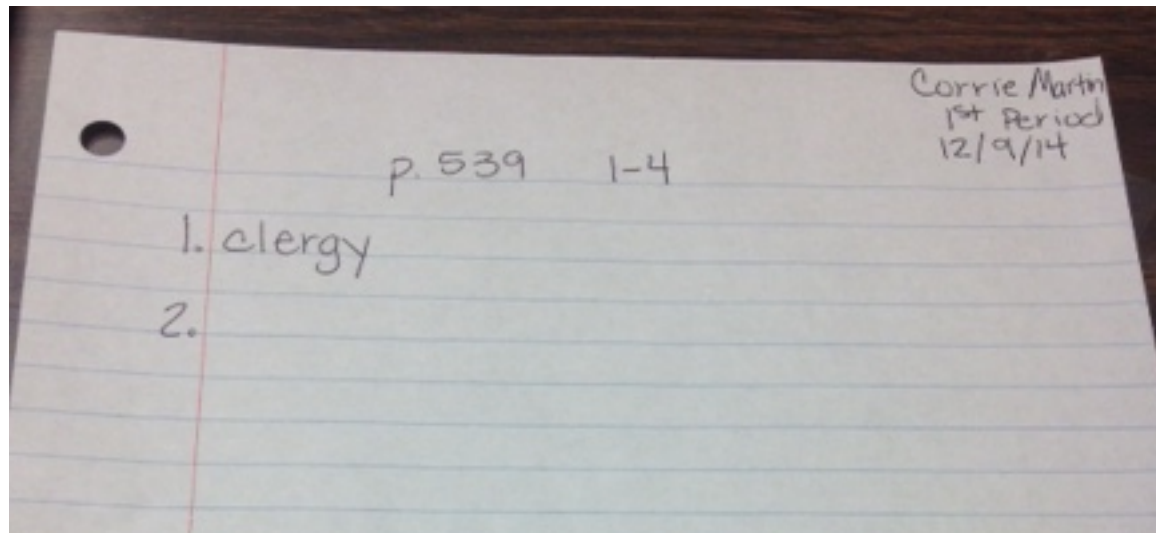 Corrie Martin
1st Period
12/9/14
p. 539 1-4
1. clergy
2.